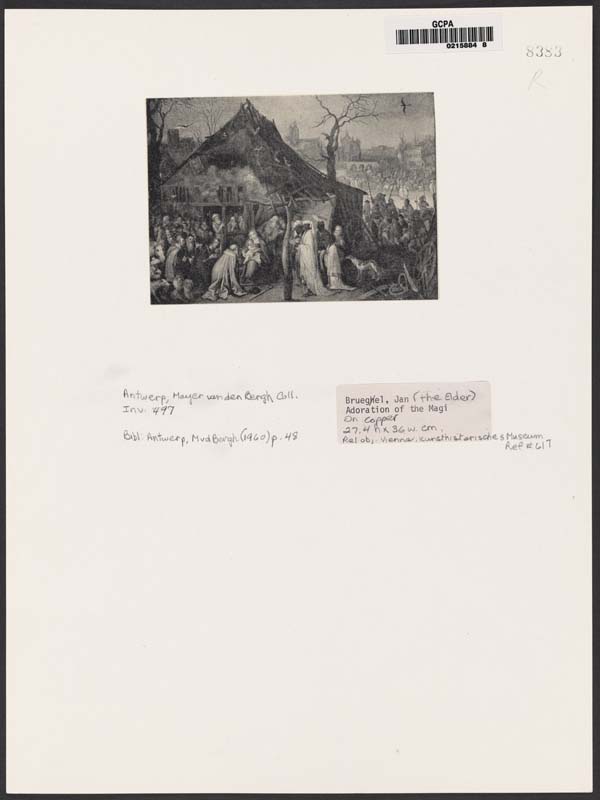 GCPA
0215884 8
8383
R
Antwerp, Mayer van den Bergh Coll.
Inv. 497
Bibl: Antwerp, MvdBergh (1960) p. 48
Brueghel, Jan (the Elder)
Adoration of the Magi
On copper
27.4 h x 36 w. cm.
Rel obj. Vienna, Kunsthistorisches Museum
Ref # 617